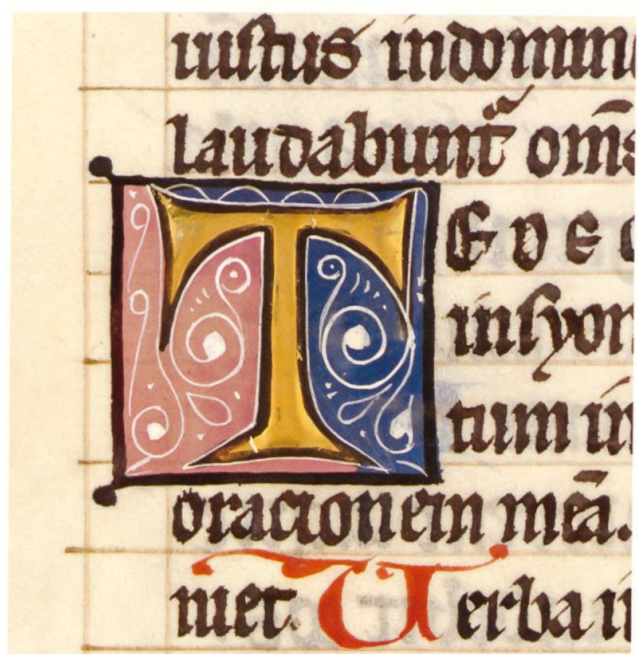 iustus in domin
laudabunt᷑ om̄s
TE DEC
in syon
tum in
oracionem meā.
niet. Verba i